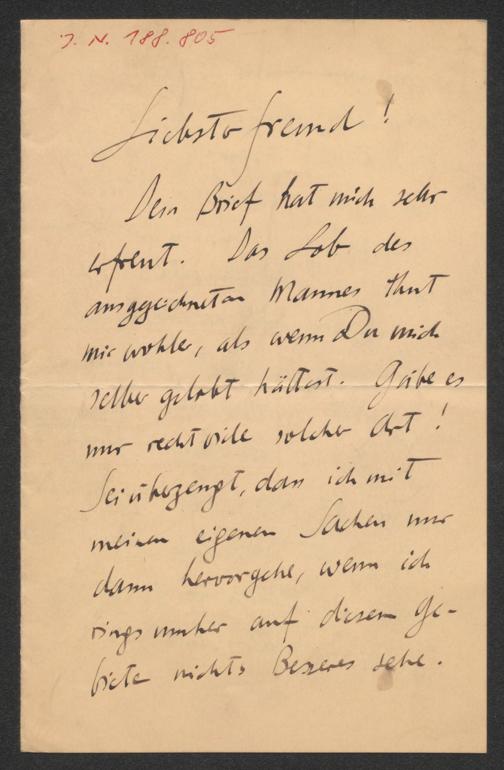 J. N. 188.805
Liebster Freund!
Dein Brief hat mich sehr
erfreut. Das Lob des
ausgezeichneten Mannes thut
mir wohler, als wenn Du mich
selber gelobt hättest. Gäbe es
nur recht viele solcher Art!
Sei überzeugt, dass ich mit
meinen eigenen Sachen nur
dann hervorgehe, wenn ich
rings umher auf diesem Ge-
biete nichts Besseres sehe.